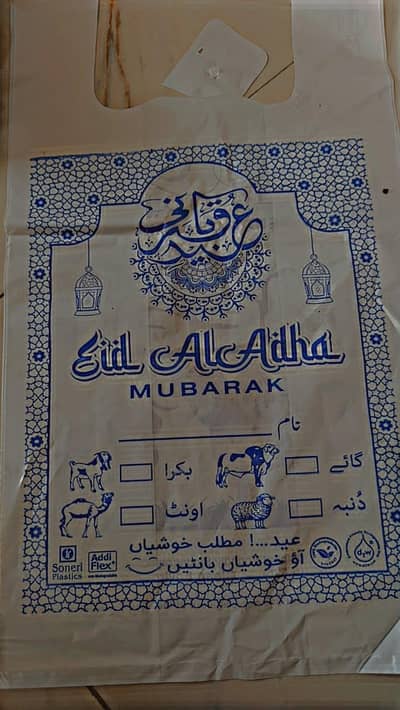 عید قربانی
Eid Al Adha
MUBARAK
نام
گائے
بکرا
دُنبہ
اونٹ
عید...! مطلب خوشیاں
آؤ خوشیاں بانٹیں
Soneri
Plastics
Addi
Flex
d₂w